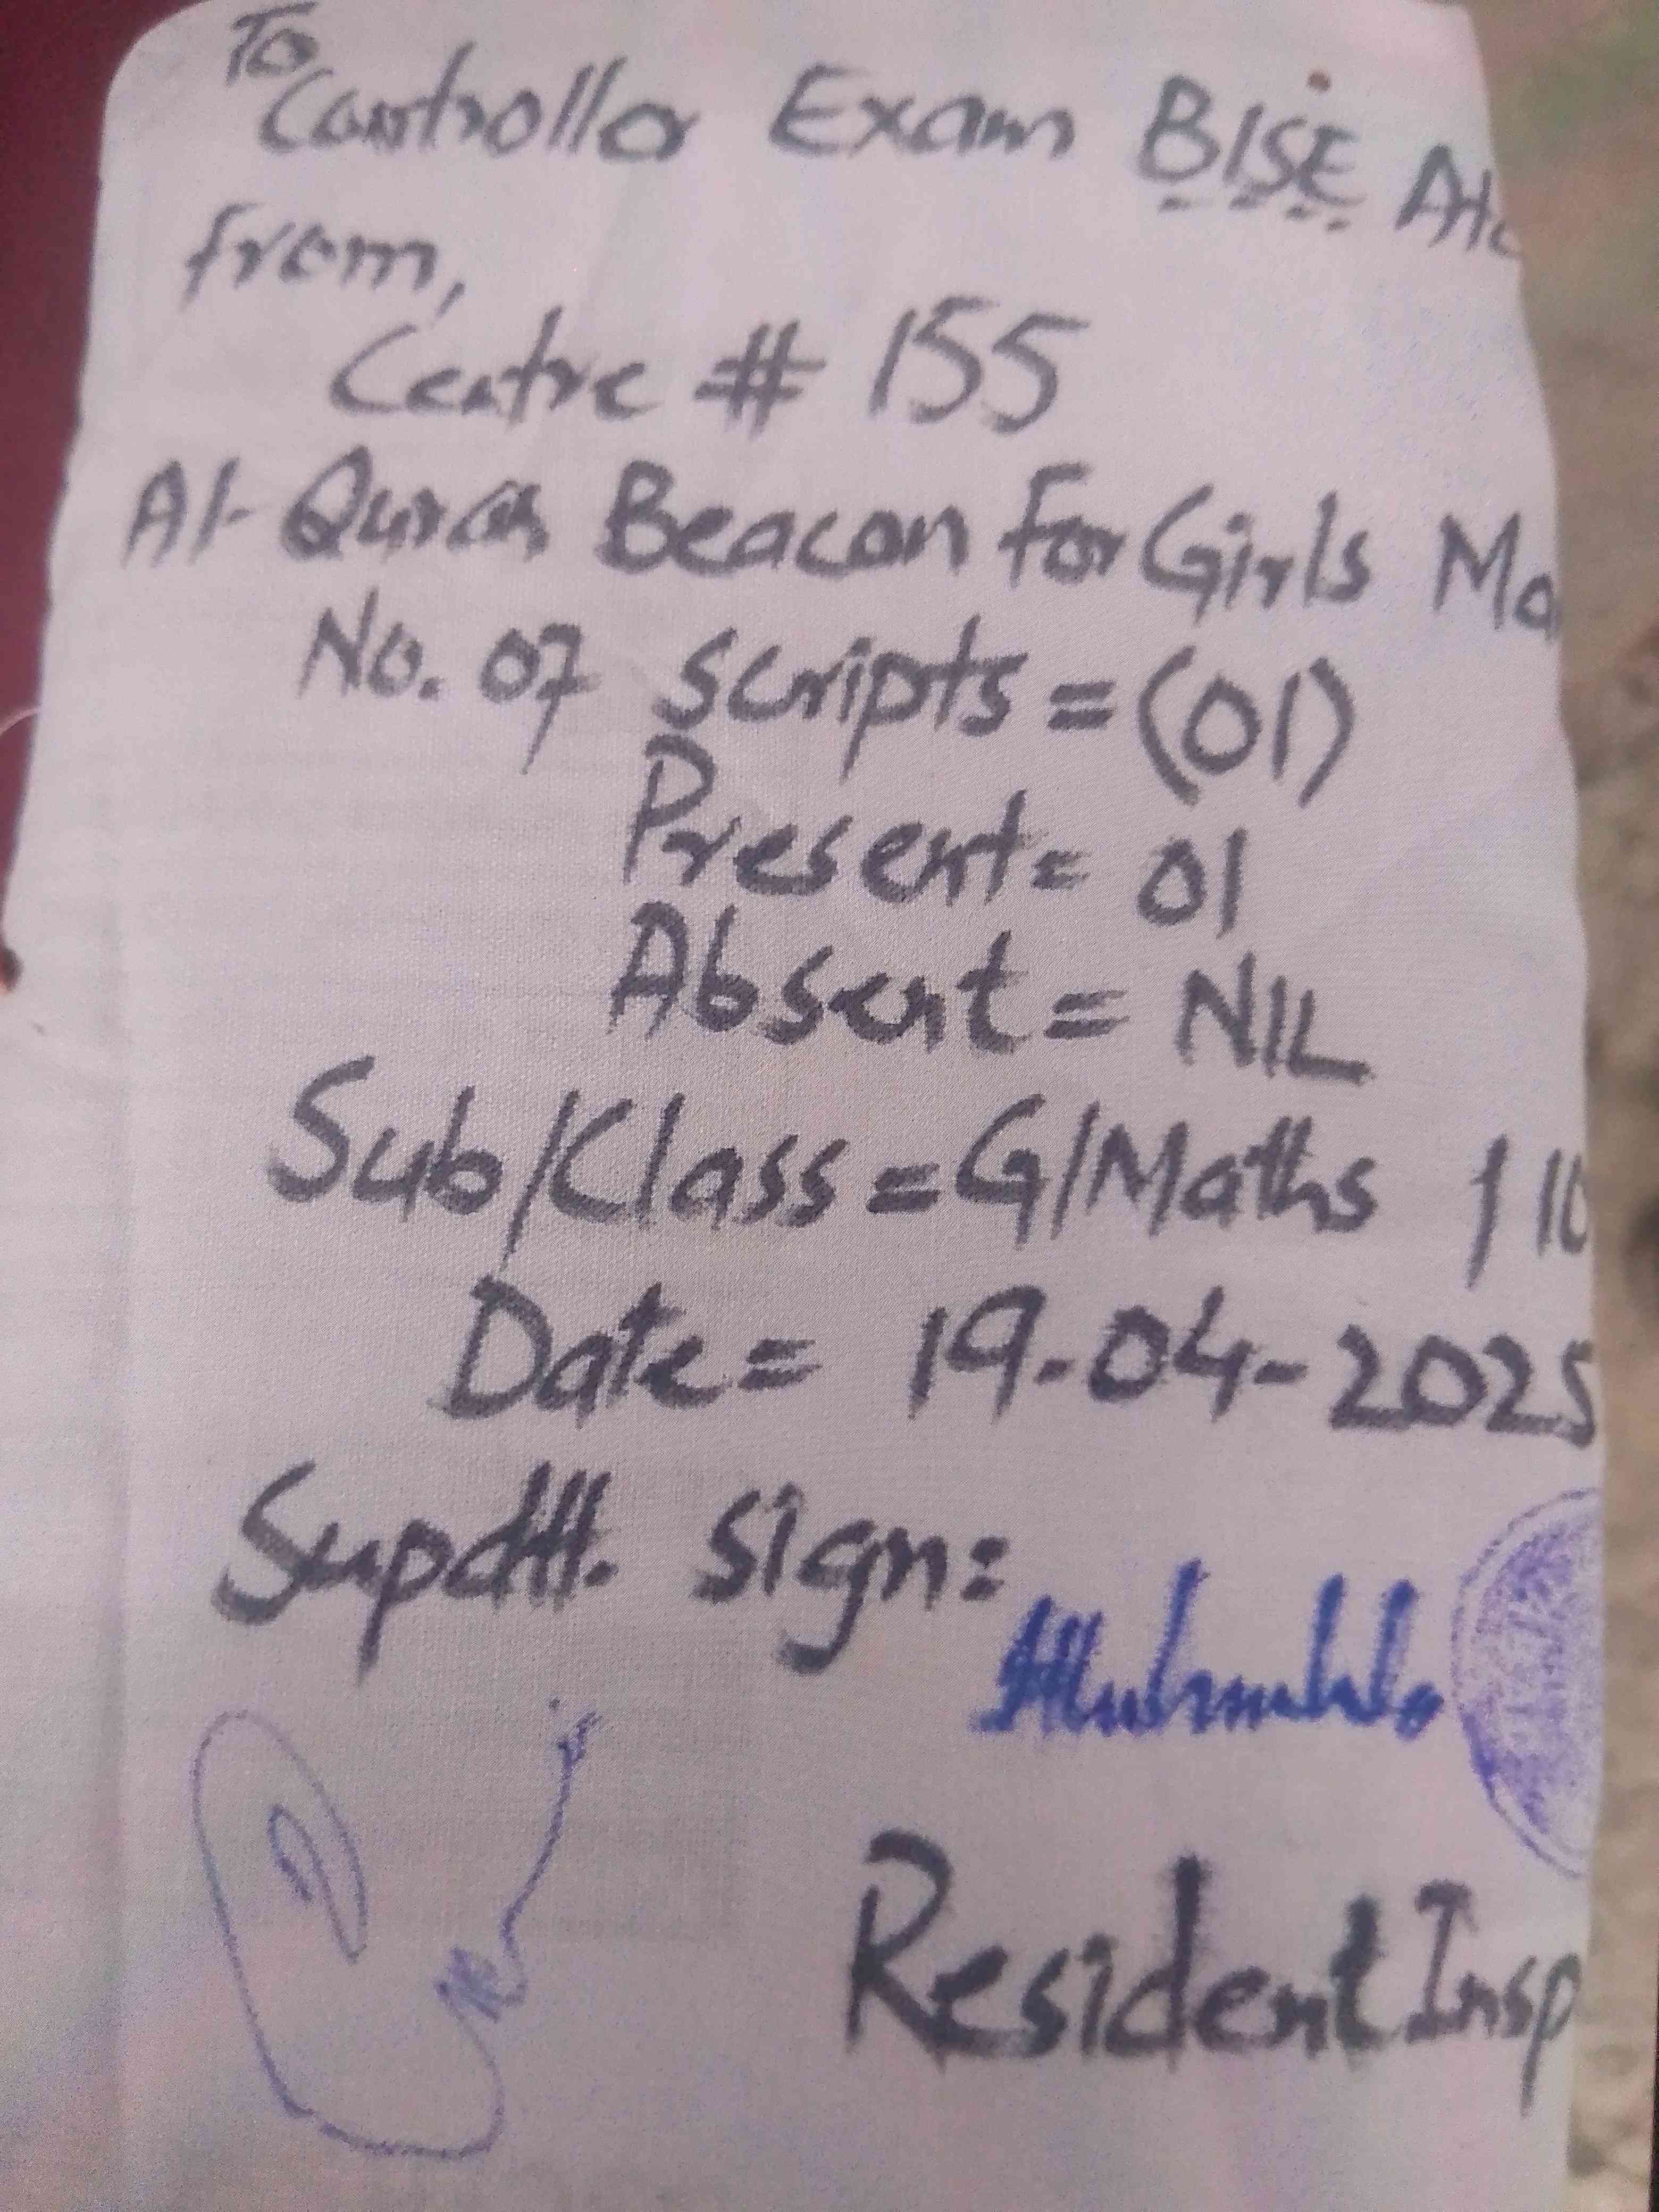 To
Controller Exam BISE
From,
Centre # 155
Al-Quran Beacon For Girls
No. 07 scripts = (01)
Present = 01
Absent = NIL
Sub/Class = G/Maths / 10
Date = 19-04-2025
Supdtt. Sign:
Resident Insp